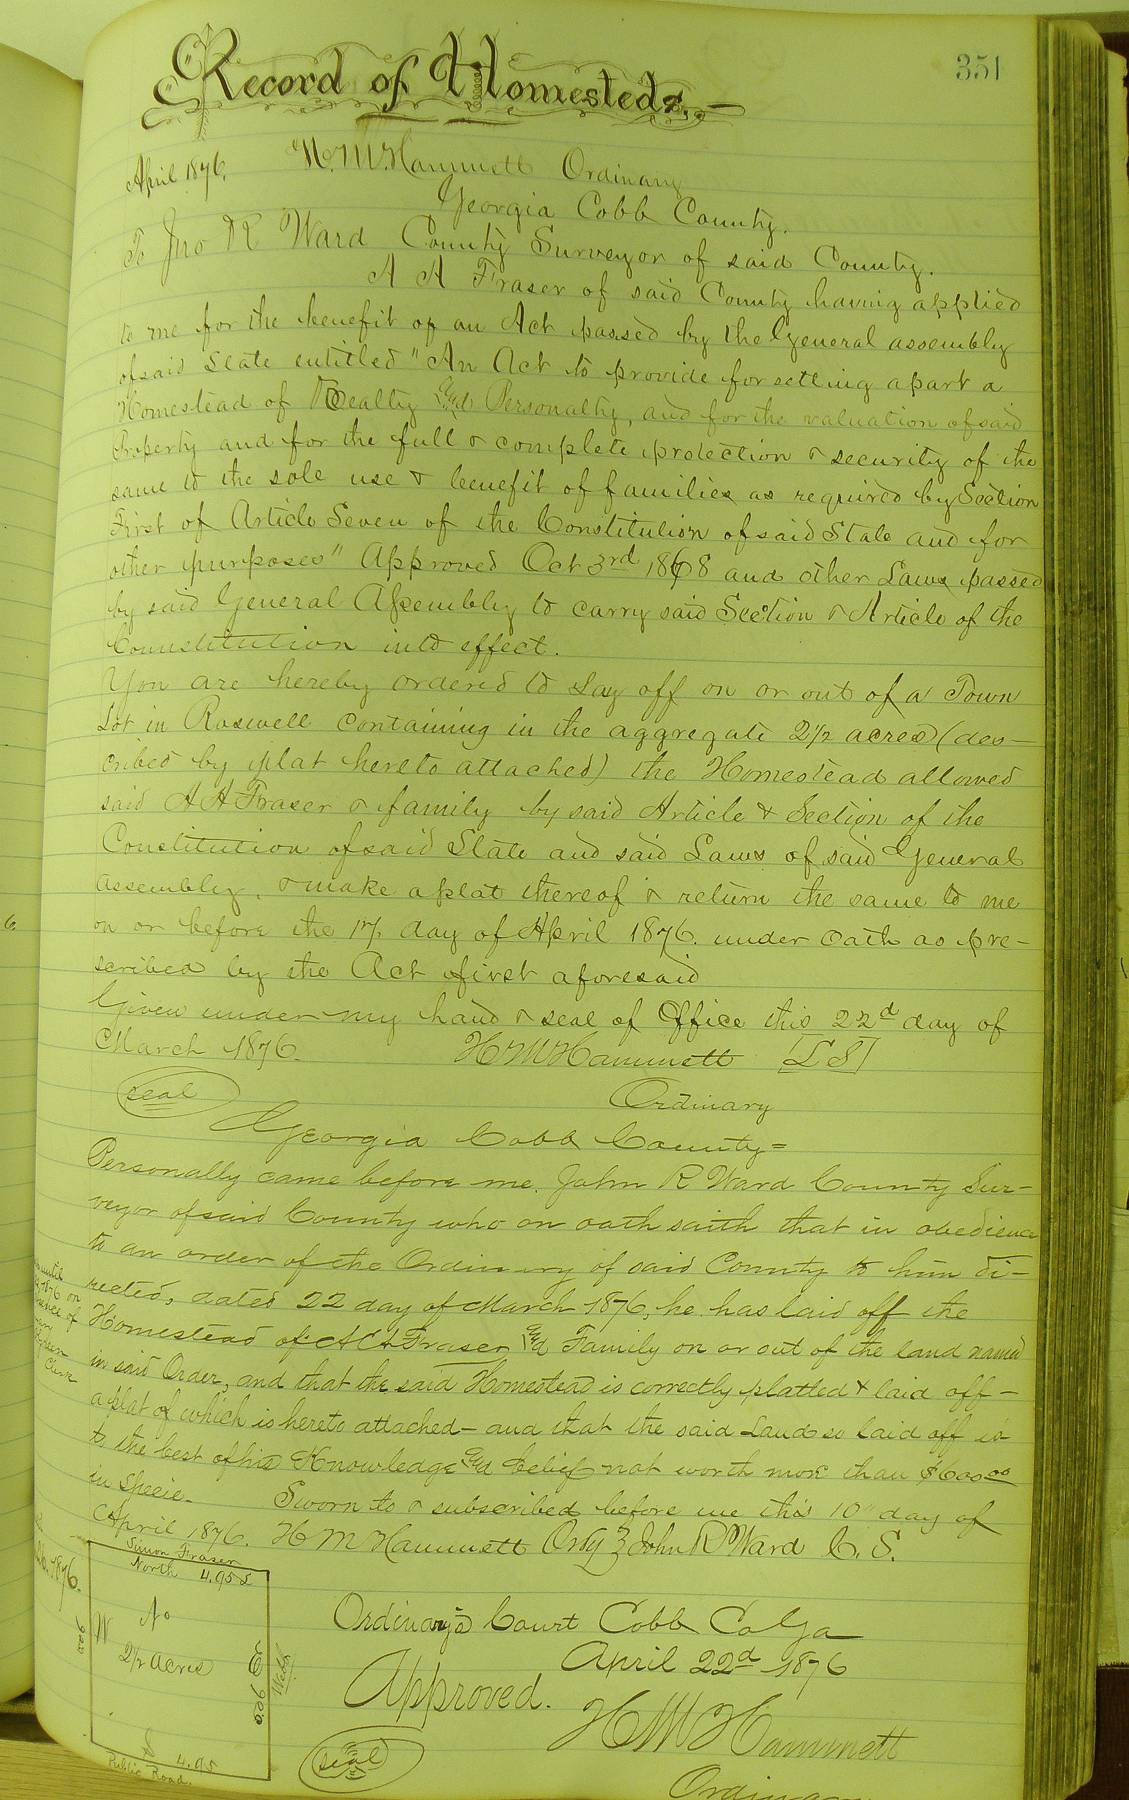 351
Record of Homesteds.
April 1876. H. M. Hammett Ordinary
Georgia Cobb County.
To Jno R Ward County Surveyor of said County.
A A Fraser of said County having applied
to me for the benefit of an Act passed by the General assembly
of said State entitled "An Act to provide for setting apart a
Homestead of Realty and Personalty, and for the valuation of said
Property and for the full & complete protection & security of the
same to the sole use & benefit of families as required by Section
First of Article Seven of the Constitution of said State and for
other purposes" Approved Oct 3rd 1868 and other Laws passed
by said General Assembly to carry said Section & Article of the
Connstitution into effect.
You are hereby ordered to Lay off on or out of a Town
Lot in Roswell containing in the aggregate 2 1/2 acres (des-
cribed by plat hereto attached) the Homestead allowed
said A A Fraser & family by said Article & Section of the
Constitution of said State and said Laws of said General
Assembly, & make a plat thereof & return the same to me
on or before the 17 day of April 1876. under oath as pre-
scribed by the Act first aforesaid
Given under my hand & seal of Office this 22d day of
March 1876. H M Hammett [L S]
seal Ordinary
Georgia Cobb County=
Personally came before me. John R Ward County Sur-
veyor of said County who on oath saith that in obedience
to an order of the Ordinary of said County to him di-
rected, dated 22 day of March 1876, he has laid off the
Homestead of A A Fraser and Family on or out of the land named
in said Order, and that the said Homestead is correctly platted & laid off-
a plat of which is hereto attached- and that the said Land so laid off is
to the best of his Knowledge and belief not worth more than $600.00
in Specie. Sworn to & subscribed before me this 10" day of
April 1876. H M Hammett Ordy } John R Ward C. S.
Simon Fraser
North 4.95
W No
2 1/2 acres
E
Webb
S 4.95
Public Road.
Ordinary's Court Cobb Co Ga
April 22d 1876
Approved.
H M Hammett
seal
Ordinary